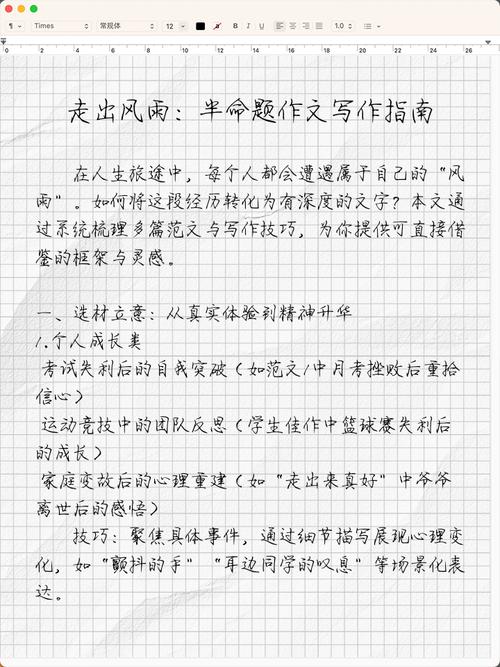 Times
常规体
12
B I U
1.0
0 2 4 6 8 10 12 14 16 18 20 22 24 26
走出风雨：半命题作文写作指南
在人生旅途中，每个人都会遭遇属于自己的“风
雨”。如何将这段经历转化为有深度的文字？本文通
过系统梳理多篇范文与写作技巧，为你提供可直接借
鉴的框架与灵感。
一、选材立意：从真实体验到精神升华
1.个人成长类
考试失利后的自我突破（如范文1中月考挫败后重拾
信心）
运动竞技中的团队反思（学生佳作中篮球赛失利后
的成长）
家庭变故后的心理重建（如“走出来真好”中爷爷
离世后的感悟）
技巧：聚焦具体事件，通过细节描写展现心理变
化，如“颤抖的手”“耳边同学的叹息”等场景化表
达。